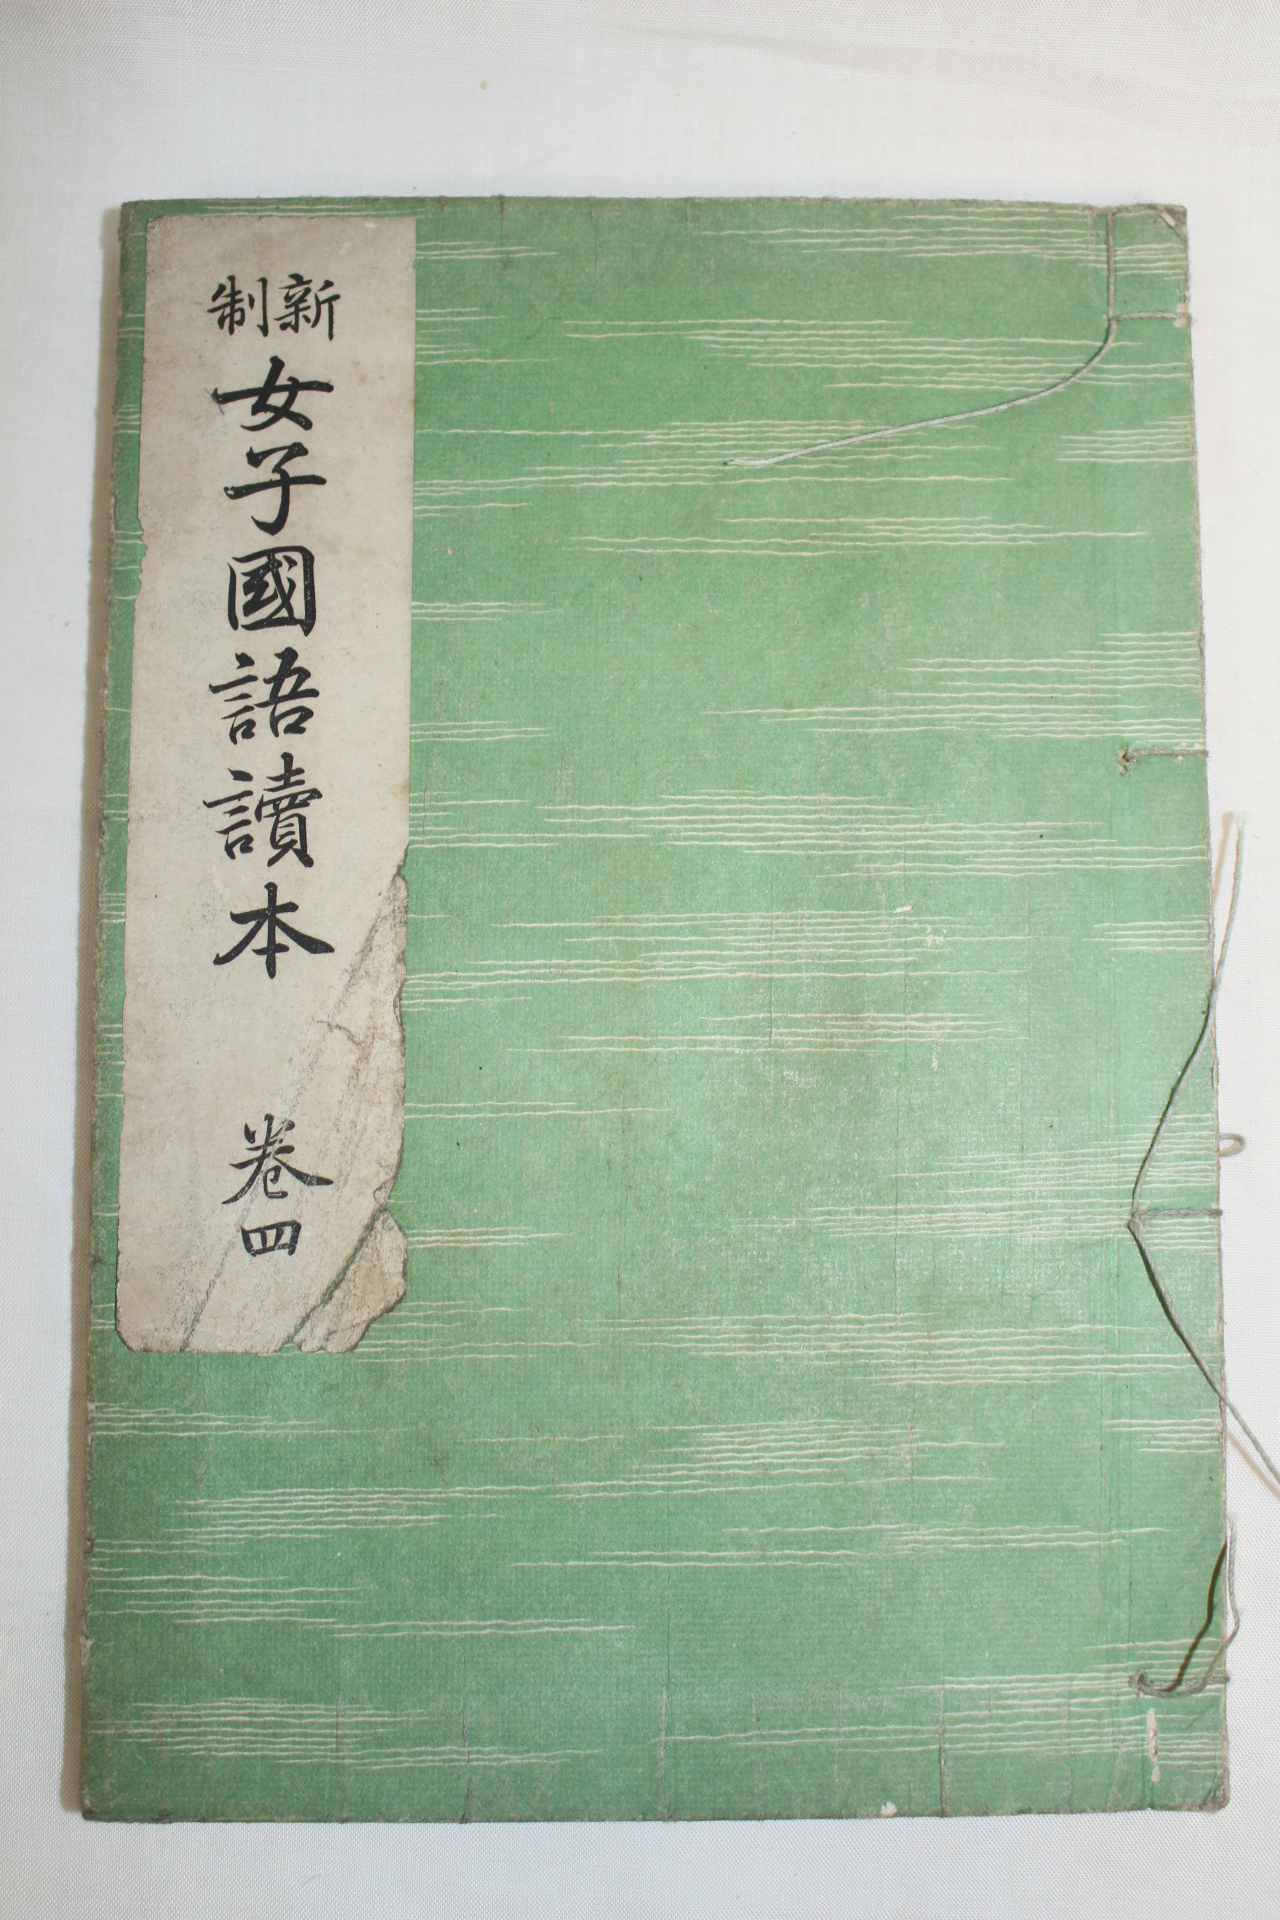 新制
女子國語讀本
卷四